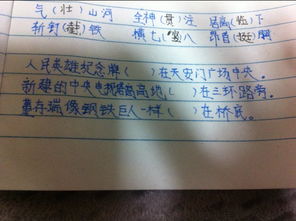 气(壮)山河 全神(贯)注 居高(临)下
斩钉(截)铁 横七(竖)八 昂首(挺)胸
人民英雄纪念牌( )在天安门广场中央。
新建的中央电视塔高高地( )在三环路旁。
董存瑞像钢铁巨人一样( )在桥底。